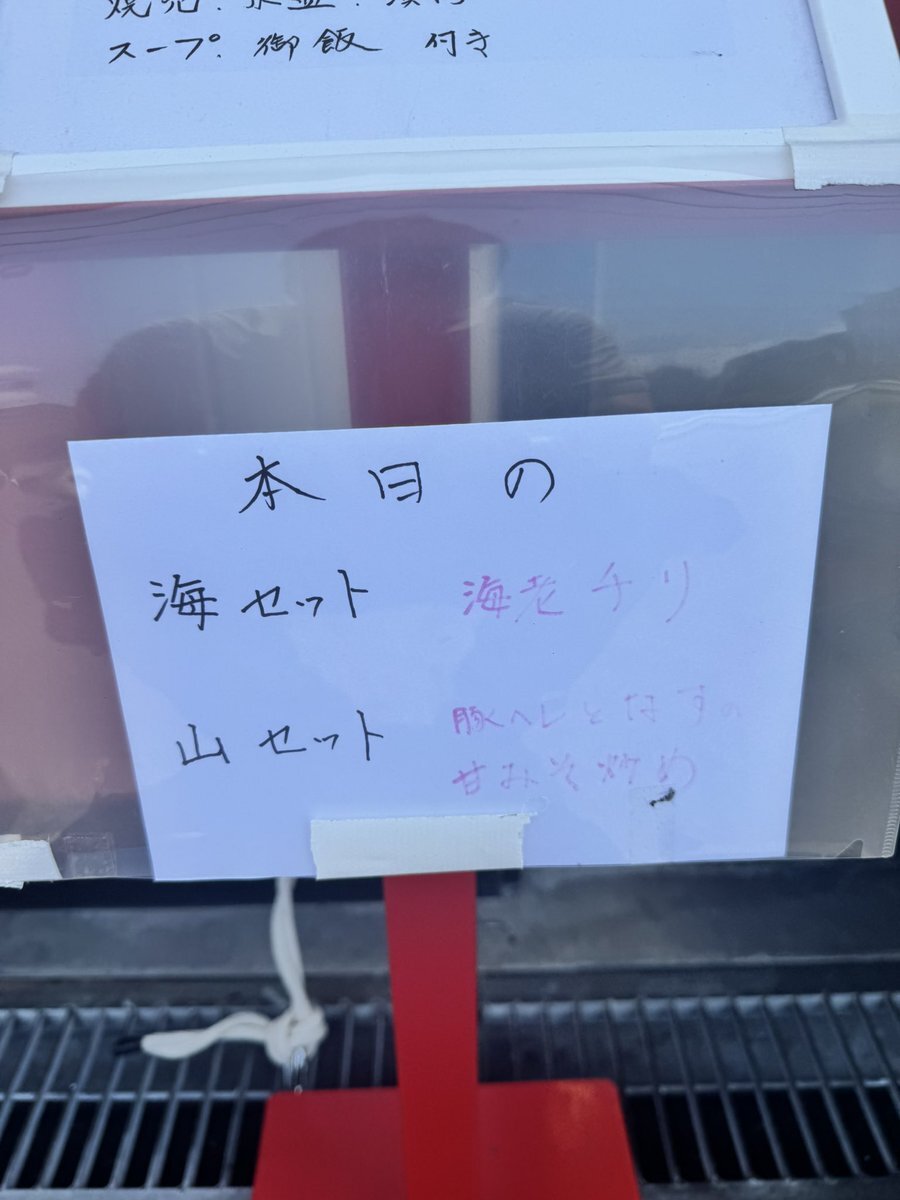 焼売.
スープ. 御飯 付き
本日の
海セット 海老チリ
山セット 豚ヘレとなすの
甘みそ炒め